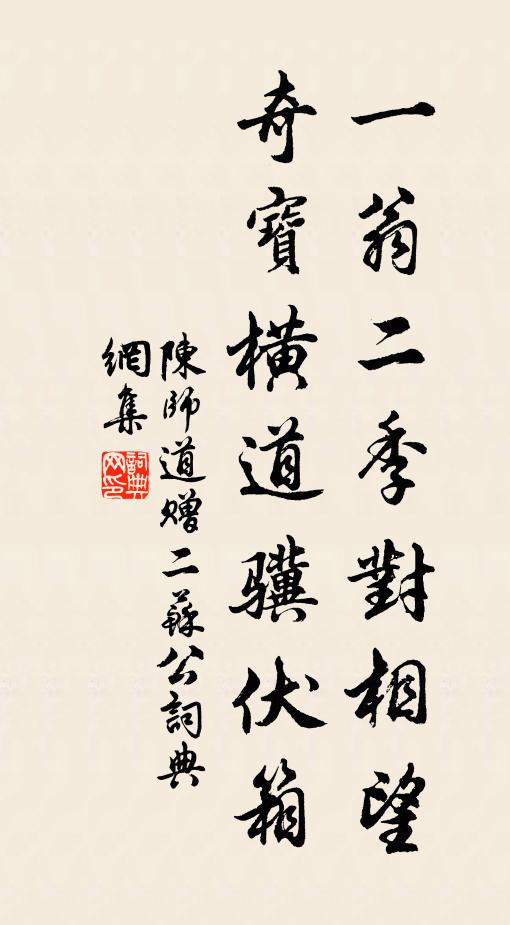 一翁二季對相望
奇寶橫道驥伏箱
陳師道贈二蘇公詞典
網集
詞典網印